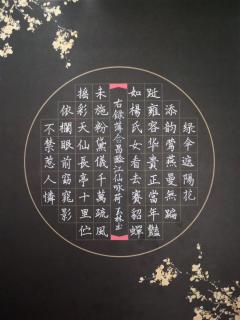 綠傘遮陽花
添韵鶯燕曼無蹁
跹雍容華貴正當年豔
如楊氏女看去賽貂蟬
右錄薛合昌臨江仙咏荷
未施粉黛儀千萬疏風
搖彩天仙長亭十里伫
依欄眼前窈窕影
不禁惹人憐